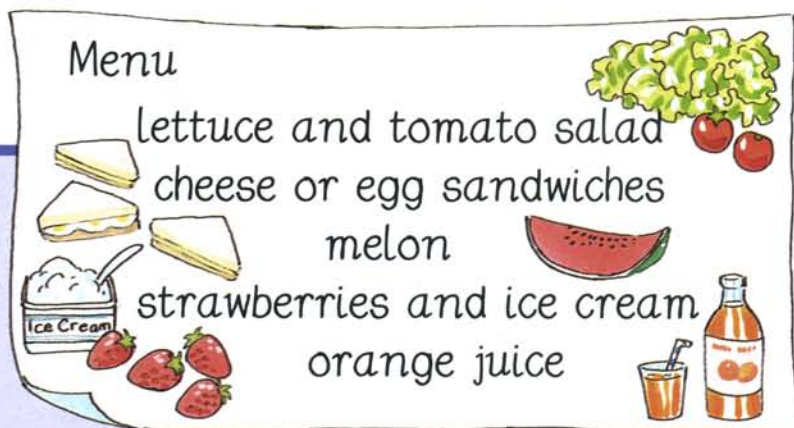 Menu
lettuce and tomato salad
cheese or egg sandwiches
melon
strawberries and ice cream
Ice Cream
orange juice